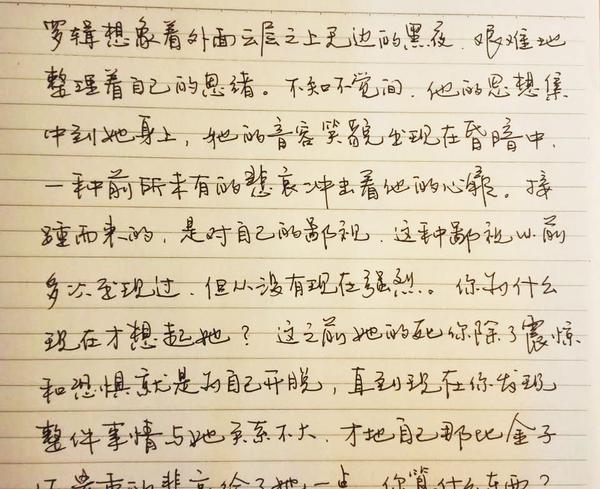 罗辑想象着外面云层之上无边的黑夜，艰难地
整理着自己的思绪。不知不觉间，他的思想集
中到她身上，她的音容笑貌出现在昏暗中，
一种前所未有的悲哀冲击着他的心灵。接
踵而来的，是对自己的鄙视，这种鄙视以前
多次出现过，但从没有现在强烈。你为什么
现在才想起她？这之前她的死你除了震惊
和恐惧就是为自己开脱，直到现在你发现
整件事情与她关系不大，才把自己那比金子
还贵重的悲哀给了她一点，你算什么东西？